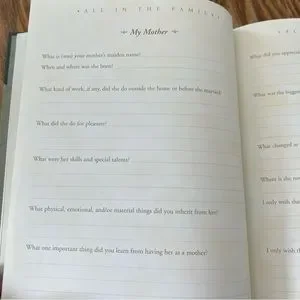 • ALL IN THE FAMILY •
My Mother
What is (was) your mother's maiden name?
When and where was she born?
What kind of work, if any, did she do outside the home or before she married?
What did she do for pleasure?
What were her skills and special talents?
What physical, emotional, and/or material things did you inherit from her?
What one important thing did you learn from having her as a mother?
What did you
What was the
What changed
Where is the
I only wish
I only wish